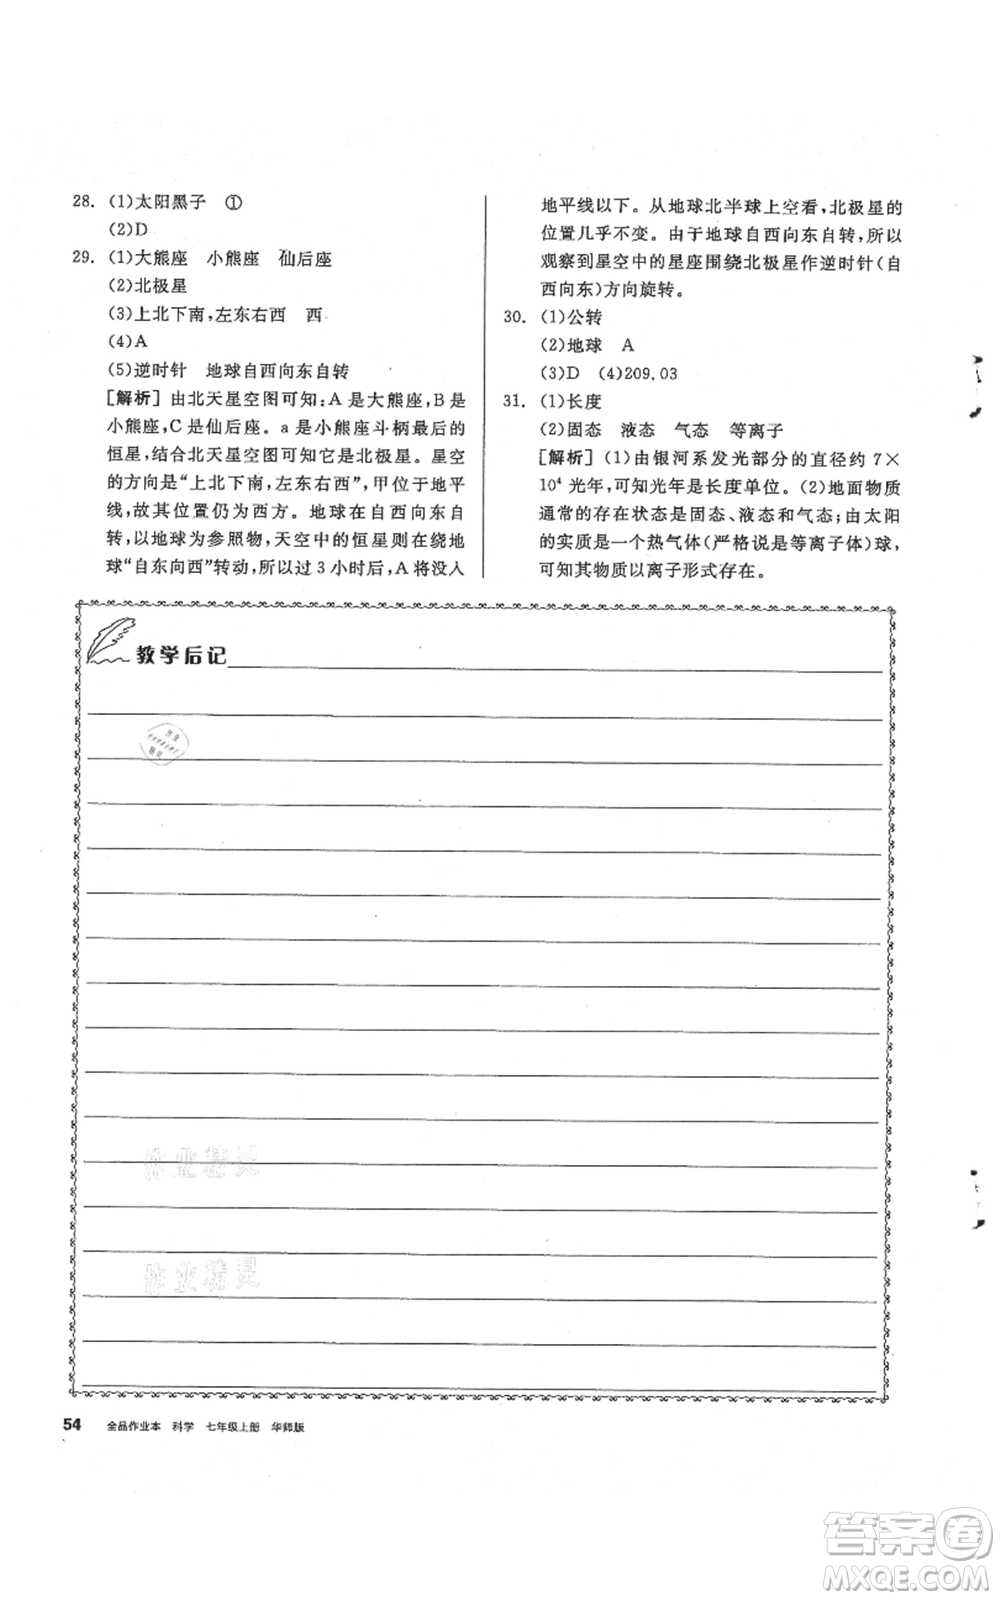 28. (1)太阳黑子　①
(2)D
29. (1)大熊座　小熊座　仙后座
(2)北极星
(3)上北下南,左东右西　西
(4)A
(5)逆时针　地球自西向东自转
[解析] 由北天星空图可知:A是大熊座,B是
小熊座,C是仙后座。a是小熊座斗柄最后的
恒星,结合北天星空图可知它是北极星。星空
的方向是“上北下南,左东右西”,甲位于地平
线,故其位置仍为西方。地球在自西向东自
转,以地球为参照物,天空中的恒星则在绕地
球“自东向西”转动,所以过3小时后,A将没入
地平线以下。从地球北半球上空看,北极星的
位置几乎不变。由于地球自西向东自转,所以
观察到星空中的星座围绕北极星作逆时针(自
西向东)方向旋转。
30. (1)公转
(2)地球　A
(3)D　(4)209.03
31. (1)长度
(2)固态　液态　气态　等离子
[解析] (1)由银河系发光部分的直径约7×
10⁴光年,可知光年是长度单位。(2)地面物质
通常的存在状态是固态、液态和气态;由太阳
的实质是一个热气体(严格说是等离子体)球,
可知其物质以离子形式存在。
教学后记
作业精灵
作业精灵
54 全品作业本　科学　七年级上册　华师版
答案卷
MXQE.COM